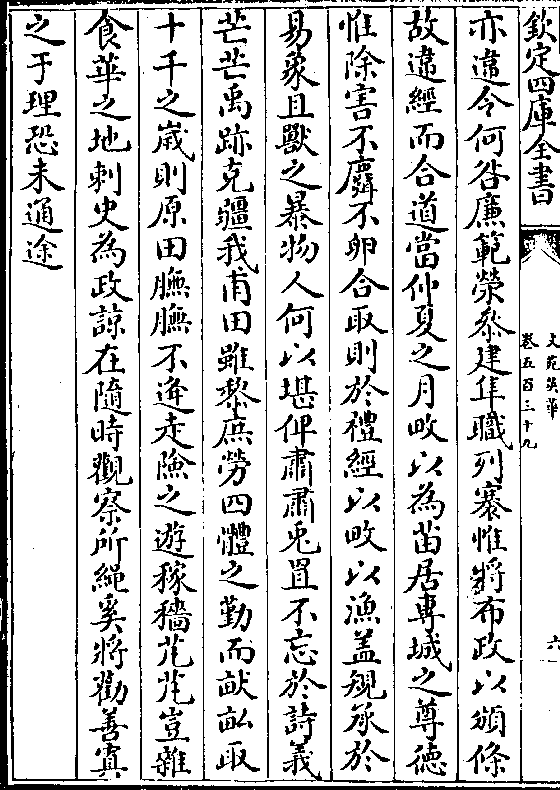 欽定四庫全書
文苑英華
卷五百三十九
六
亦違令何咎廉範榮叅建隼職列褰惟將布政以頒條
故違經而合道當仲夏之月畋以為苗居專城之尊德
惟除害不麛不卵合取則於禮經以畋以漁盖規承於
易象且獸之暴物人何以堪俾肅肅兎罝不忘於詩義
芒芒禹跡克疆我甫田雖黎庶勞四體之勤而畎畝取
十千之嵗則原田膴膴不逄走險之遊稼穡芃芃豈雜
食苹之地刺史為政諒在隨時觀察所繩奚將勸善寘
之于理恐未通途